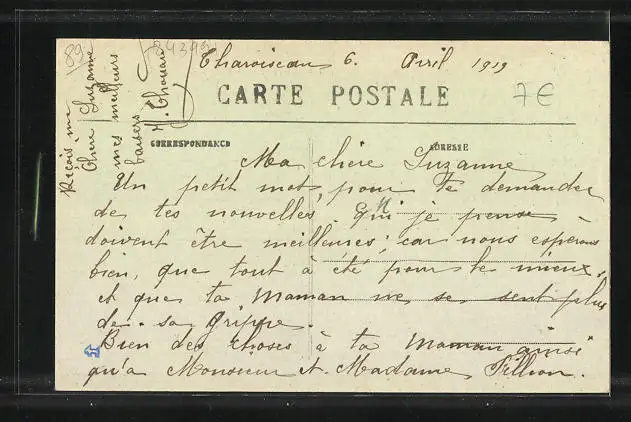 Charoiseau 6. Avril 1919
CARTE POSTALE
7€
89
84392
CORRESPONDANCE
ADRESSE
Ma chère Suzanne
Un petit mot, pour te demander
de tes nouvelles, qui je pense
doivent être meilleures, car nous espérons
bien, que tout à été pour le mieux.
et que ta Maman ne se sent plus
de sa Grippe.
Bien des choses à ta Maman ainsi
qu'à Monsieur et Madame Pillion.
Reçois ma
Chère Suzanne
mes meilleurs
baisers